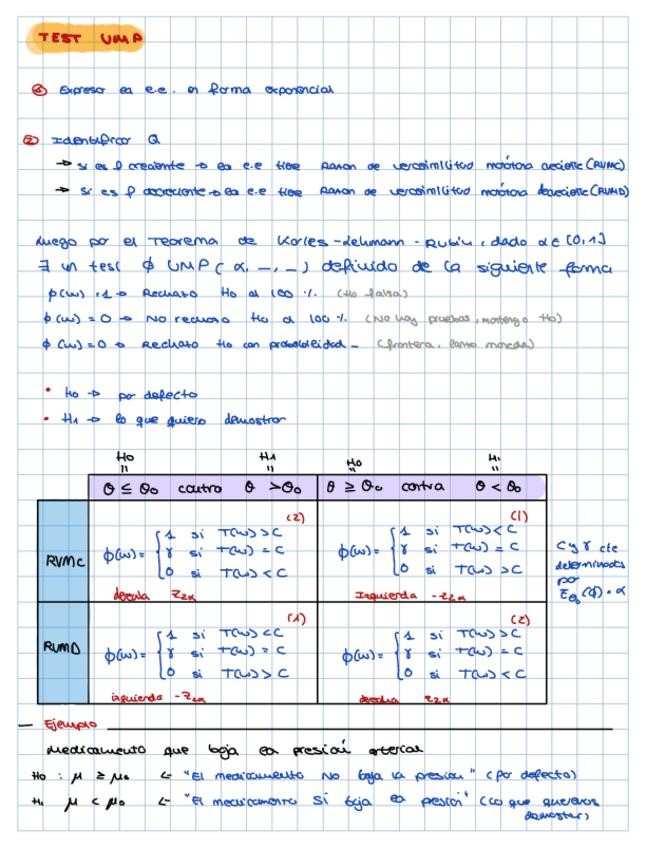 TEST UMP
① Expresar la e.e. en forma exponencial
② Identificar Q
→ si es f creciente → la e.e tiene Razon de verosimilitud monótona creciente (RVMC)
→ si es f decreciente → la e.e tiene Razon de verosimilitud monótona decreciente (RVMD)
Luego por el Teorema de Karles-Lehmann-Rubin, dado α ∈ [0,1]
∃ un test ϕ UMP (α, -, -) definido de la siguiente forma
ϕ(w) = 1 → Rechazo Ho al 100 %. (Ho falsa)
ϕ(w) = 0 → No rechazo Ho al 100 %. (No hay pruebas, mantengo Ho)
ϕ(w) = 0 → Rechazo Ho con probabilidad - (frontera, lanzo moneda)
• Ho → por defecto
• H1 → lo que quiero demostrar
Ho H1 Ho H1
θ ≤ θo contra θ > θo θ ≥ θo contra θ < θo
RVMC
(2)
ϕ(w) = { 1 si T(w) > C
γ si T(w) = C
0 si T(w) < C
derecha z2α
(1)
ϕ(w) = { 1 si T(w) < C
γ si T(w) = C
0 si T(w) > C
Izquierda -z2α
C y γ cte
determinados
por
Eθo(ϕ) = α
RVMD
(1)
ϕ(w) = { 1 si T(w) < C
γ si T(w) = C
0 si T(w) > C
izquierda -z2α
(2)
ϕ(w) = { 1 si T(w) > C
γ si T(w) = C
0 si T(w) < C
derecha z2α
— Ejemplo
Medicamento que baja la presión arterial
Ho : μ ≥ μo ← "El medicamento NO baja la presion" (por defecto)
H1 μ < μo ← "El medicamento SI baja la presion" (lo que queremos
demostrar)